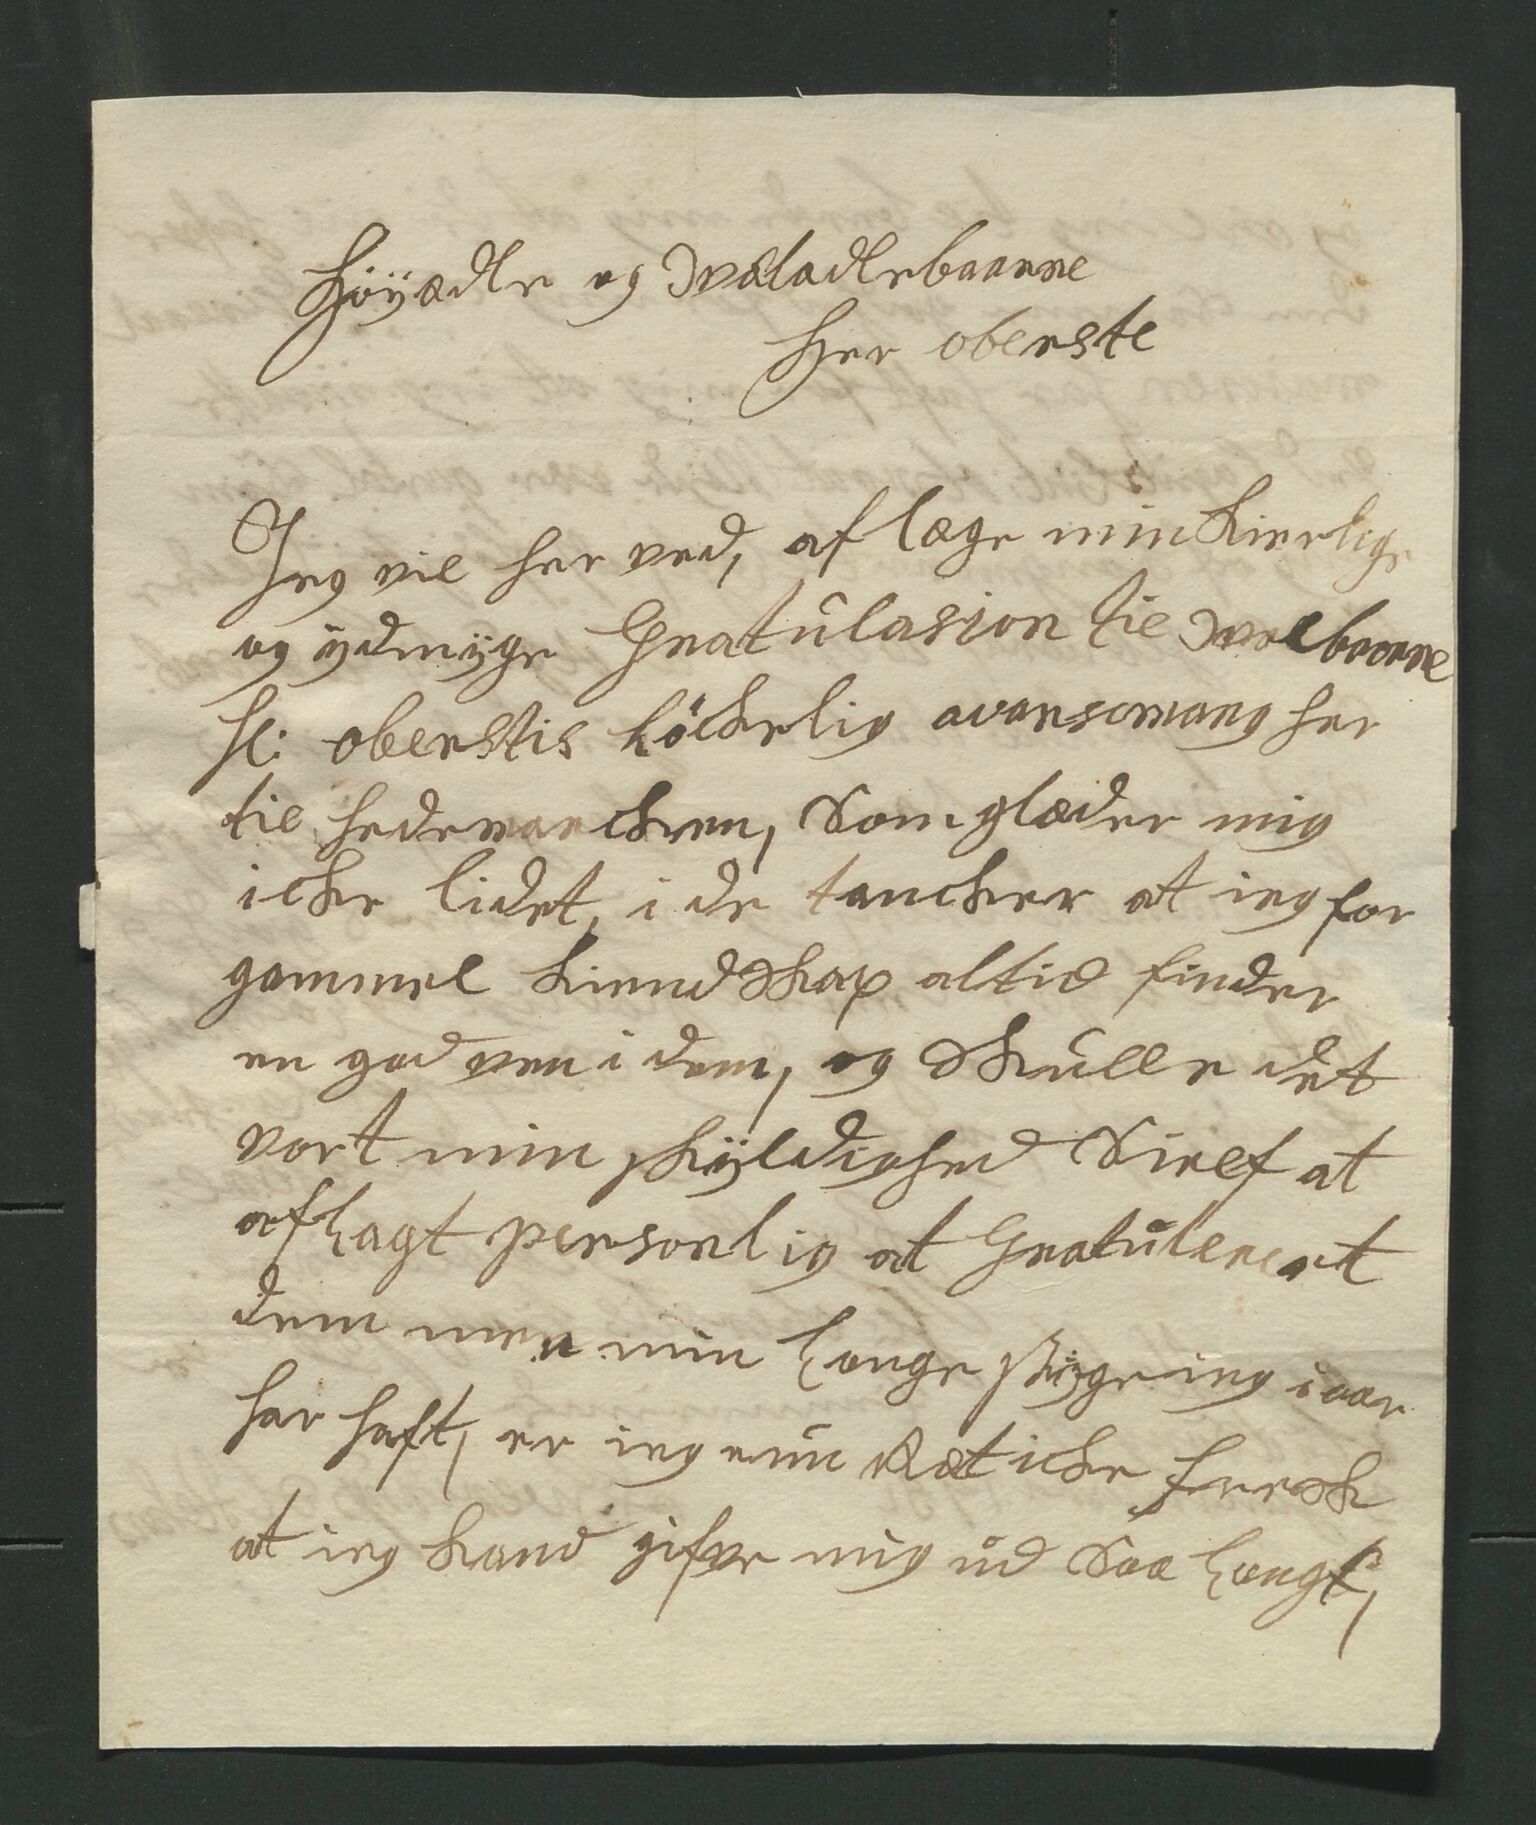 Høÿædle og Velædlebaarne
Her oberste
Jeg vil her ved, af læge min kierlige
og ÿdmÿge Gratulasion til Velbaarne
H: oberstis løckelig avansemang her
til hedemarcken, Som glæder mig
icke lidet, i de tancker at ieg for
gammel kiendskap altid finder
en god ven i dem, og skulle det
vort min skÿldighed Sielf at
aflagt personlig at Gratulerat
dem men min lange sÿge ieg i aar
har haft, er ieg nu Ræt icke fersk
at ieg kand gifve mig ud Saa langt,